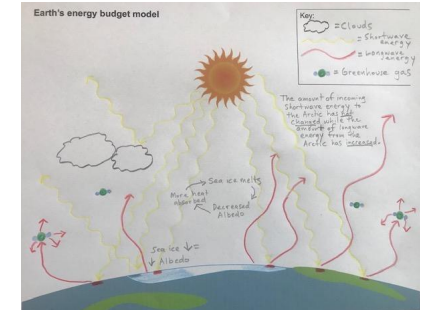 Earth's energy budget model
Key:
= Clouds
= Shortwave
energy
= Longwave
energy
= Greenhouse gas
The amount of incoming
Shortwave energy to
the Arctic has not
changed while the
amount of longwave
energy from the
Arctic has increased.
Sea ice melts
More heat
absorbed
Decreased
Albedo
Sea ice ↓ =
↓ Albedo